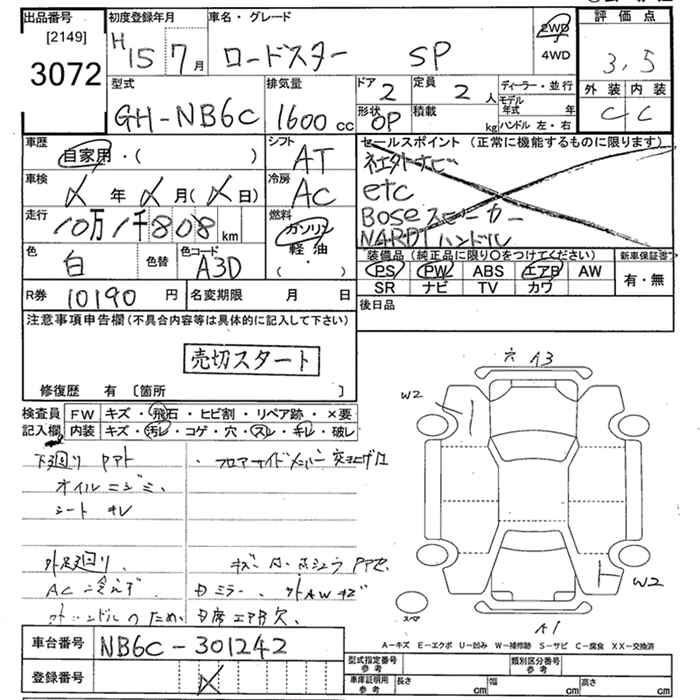 出品番号 初度登録年月 車名・グレード 評価点
[2149] H15 7月 ロードスター SP 2WD 3.5
3072 4WD
外装 内装
型式 排気量 ドア 2 定員 2人 ディーラー・並行 C C
GH-NB6C 1600cc 形状 OP 積載 kg モデル年式 年
ハンドル 左・右
車歴 シフト セールスポイント(正常に機能するものに限ります)
自家用・( ) AT
車検 冷房 etc
年 月( 日) AC BOSEスピーカー
走行 燃料 NARDIハンドル
10万1千808km ガソリン
色 色替 色コード 軽油
白 A3D ・( )
装備品(純正品に限り○をつけてください) 新車保証書
PS PW ABS エアB AW 有・無
SR ナビ TV カワ
R券 10190円 名変期限 月 日 後日品
注意事項申告欄(不具合内容等は具体的に記入して下さい)
売切スタート
修復歴 有〔箇所 〕
検査員 FW キズ・飛石・ヒビ割・リペア跡・×要
記入欄 内装 キズ・汚レ・コゲ・穴・スレ・キレ・破レ
A3
W2
下廻り
オイルニジミ、
シート キレ
外廻り
AC 冷えず
ハンドルのため、
W2
スペア
A1
A-キズ E-エクボ U-凹み W-補修跡 S-サビ C-腐食 XX-交換済
車台番号 NB6C-301242
登録番号
型式指定番号 参考 類別区分番号 参考
車庫証明用 参考 長さ cm 幅 cm 高さ cm